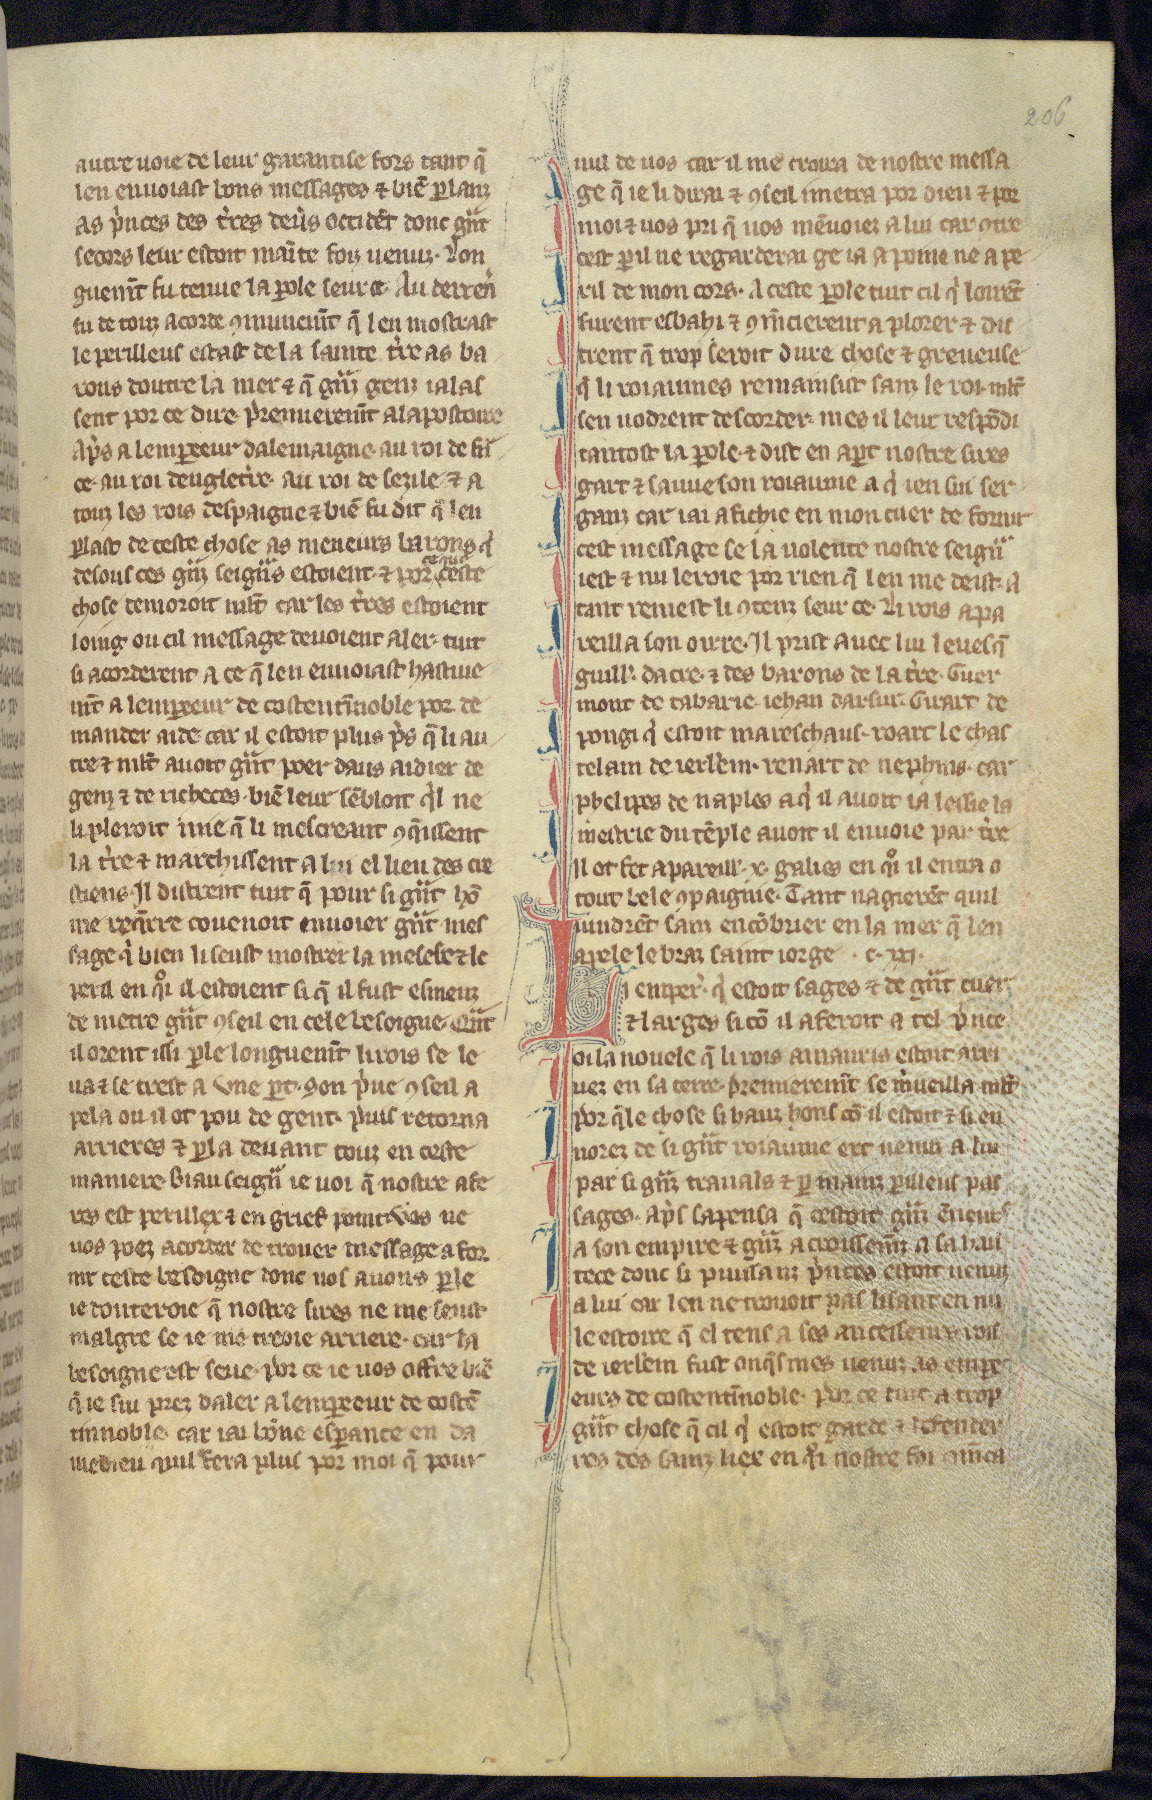 206
autre uoie de leur garantise fors tant q̃
len enuoiast bons messages ⁊ biẽ ꝑlanz
as p̃nces des t̃res deũs occidẽt donc gñt
secors leur estoit mainte foiz uenuz. Lon
guem̃t fu tenue la ꝑole seur ce. Au derreñ
fu de touz acorde ꝯmunem̃t q̃ len mostrast
le perilleus estast de la sainte t̃re as ba
rons doutre la mer ⁊ q̃ gñz genz ialas
sent por ce dire. p̃remierem̃t a lapostoire
Ap̃s a lemꝑeeur dalemaigne. au roi de frã
ce. au roi dengletr̃e. au roi de sezile. ⁊ a
touz les rois despaigne ⁊ biẽ fu dit q̃ len
ꝑlast de ceste chose as meneurs barons q̃
desous ces gñz seigñs estoient. ⁊ por ce que ceste
chose demoroit ml̃t car les t̃res estoient
loing ou cil message deuoient aler. tuit
si acorderent a ce q̃ len enuoiast hastiue
m̃t a lemꝑeeur de costentĩnoble por de
mander aide car il estoit plus p̃s q̃ li au
tre ⁊ ml̃t auoit gñt poer daus aidier de
genz ⁊ de richeces. biẽ leur sẽbloit q̃l ne
li pleroit mie q̃ li mescreant ꝯq̃issent
la t̃re ⁊ marchissent a lui el lieu des cre
stiens. Il distrent tuit q̃ pour si gñt hõ
me req̃rre couenoit enuoier gñt mes
sage q̃ bien li seust mostrer la mesese ⁊ le
peril en q̃i il estoient si q̃ il fust esmeuz
de metre gñt ꝯseil en cele besoigne. Q̃nt
il orent issi ꝑle longuem̃t li rois se le
ua ⁊ se trest a une ꝑt. son p̃ue ꝯseil a
pela ou il ot pou de gent. puis retorna
arrieres ⁊ ꝑla deuant touz en ceste
maniere. Biau seigñ ie uoi q̃ nostre afe
res est perillex ⁊ en grief point. Vos ne
uos poez acorder de trouer message a for
nir ceste besoigne donc nos auons ꝑle
ie douteroie q̃ nostre sires ne me seust
malgre se ie me treoie arriere. car la
besoigne est seue. por ce ie uos offre biẽ
q̃ ie sui prez daler a lemꝑeeur de costẽ
tinnoble. car iai bõne esꝑance en da
medieu quil fera plus por moi q̃ pour
nul de uos car il me croira de nostre messa
ge q̃ ie li dirai ⁊ ꝯseil i metra por dieu ⁊ por
moi ⁊ uos pri q̃ uos mẽuoiez a lui car ꝯtre
cest ꝑil ne regarderai ge ia a poine ne a pe
ril de mon cors. A ceste ꝑole tuit cil q̃ loirẽt
furent esbahi ⁊ ꝯm̃cierent a plorer ⁊ di
trent q̃ trop seroit dure chose ⁊ greueuse
q̃ li roiaumes remainsist sanz le roi. ml̃t
sen uodrent descorder. mes il leur respõdi
tantost la ꝑole. ⁊ dist en aꝑt nostre sires
gart ⁊ sauue son roiaume a q̃ ien sui ser
ganz car iai afichie en mon cuer de fornir
cest message se la uolente nostre seigñ
iest ⁊ nu leroie por rien q̃ len me deist. A
tant remest li ꝯtenz seur ce. Li rois apa
reilla son oirre. Il prist auec lui leuesq̃
guill'. dacre. ⁊ des barons de la t̃re. Guer
mont de tabarie. iehan darsur. Girart de
pongi q̃ estoit mareschaus. roart le chas
telain de ierl̃em. renart de nephins. car
phelipes de naples a q̃ il auoit ia lessie la
mestrie du tẽple auoit il enuoie par t̃re
Il ot fet apareill'. x. galies en q̃i il entra o
tout bele ꝯpaignie. Tant nagierẽt quil
uindrẽt sanz encõbrier en la mer q̃ len
apele le braz saint iorge . c. xxj.
Li emper̃. q̃ estoit sages ⁊ de gñt cuer
⁊ larges si cõ il aferoit a tel p̃nce
oi la nouele q̃ li rois amauris estoit arri
uez en sa terre. p̃remierem̃t se m̃ueilla ml̃t
por q̃le chose si hauz hons cõ il estoit ⁊ si en
norez de si gñt roiaume ert uenuz a lui
par si gñz trauals ⁊ ꝑ mainz ꝑilleus pas
sages. Ap̃s sapensa q̃ cestoit gñz ẽnenr̃s
a son empire ⁊ gñz a croissem̃z a sa hau
tece donc si puissanz p̃nces estoit uenuz
a lui car len ne trouoit pas lisant en nu
le estoire q̃ el tens a ses ancesseurs rois
de ierl̃em fust onq̃s mes uenuz as empe
eurs de costentĩnoble. por ce tint a trop
gñt chose q̃ cil q̃ estoit garde ⁊ defender
res des sainz liex en q̃i nostre foi ꝯm̃ca